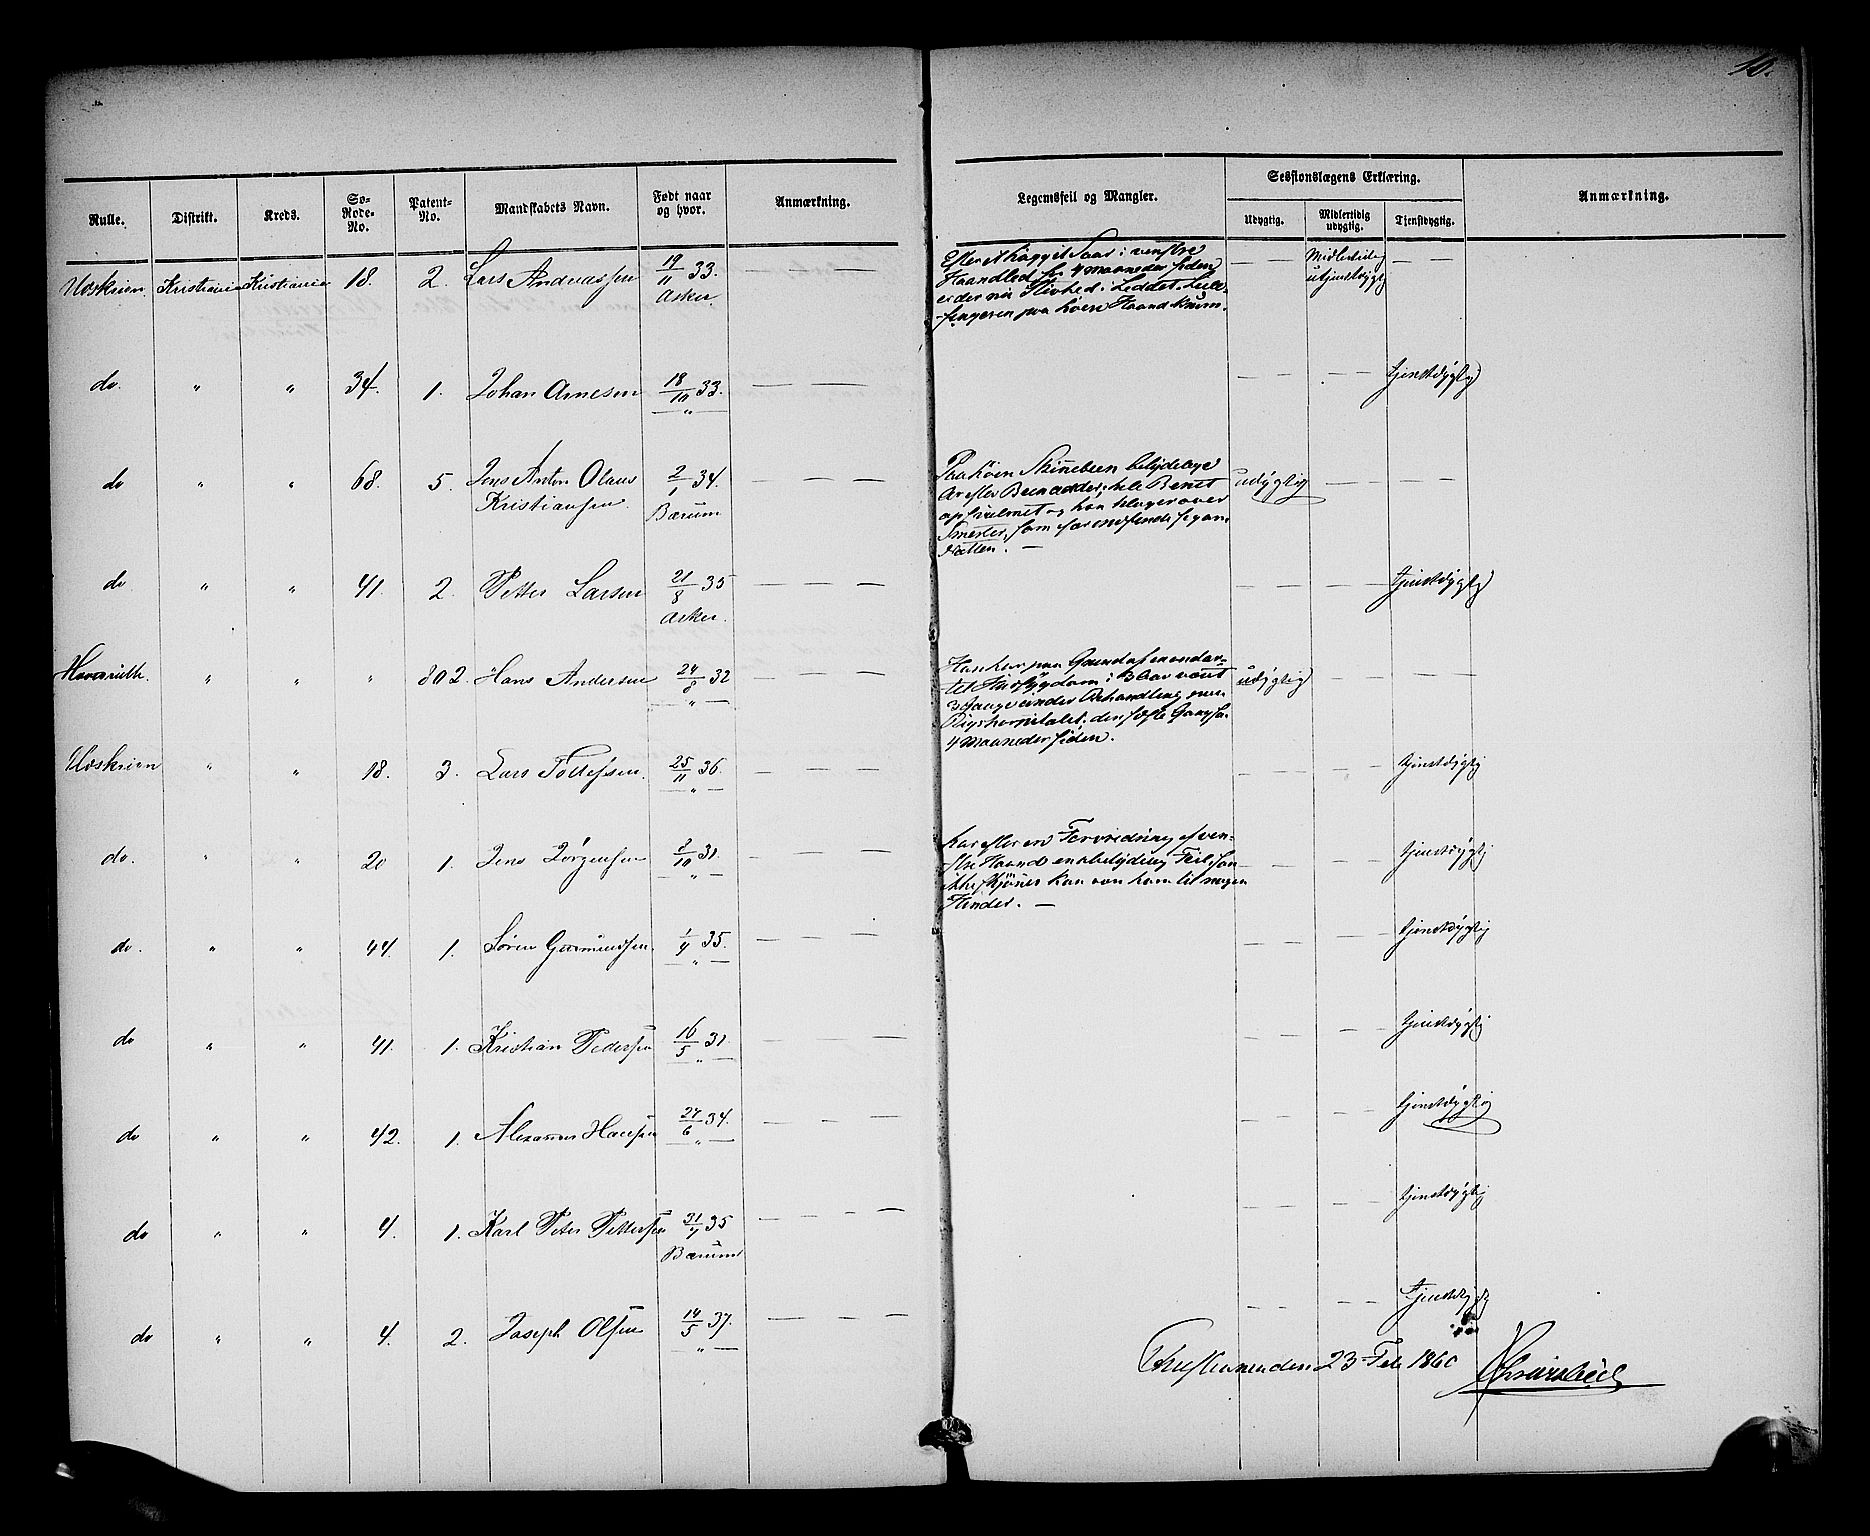 10.
Rulle. Distrikt. Kreds. Sø-Rode-No. Patent-No. Mandskabets Navn. Født naar og hvor. Anmærkning. Legemsfeil og Mangler. Sessionslægens Erklæring. Anmærkning.
Udygtig. Midlertidig udygtig. Tjenstdygtig.
Udskreven Kristiania Kristiania 18. 2. Lars Andreassen 19/11 33. Asker.
Efter et hugget Saar i venstre
Haandled for 4 Maaneder siden
er der nu Stivhed i Leddet. Lille-
fingeren paa høire Haand krum.
— — Midlertidig utjenstdygtig — —
do. " " 34. 1. Johan Arnesen 18/10 33. " — — — — — — tjenstdygtig
do " " 68. 5. Jens Anton Olaus Kristiansen. 2/1 34. Bærum
Paa høire Skinebeen betydelige
Ar efter Beenadder; hele Benet
ophovlnet og han klager over
Smerter, som
Natten. —
udygtig — — — —
do " " 41. 2. Petter Larsen 21/8 35 Asker. — — — — — — — tjenstdygtig
" " " 802. Hans Andersen 24/8 32 "
3 Gange under Behandling paa
Rigshospitalet; den sidste Gang for
4 Maaneder siden.
udygtig — — — —
Udskreven " " 18. 3. Lars Tollefsen. 25/11 36. " — — — — — — — tjenstdygtig
do. " " 20 1. Jens Jørgensen 8/10 31. "
Har efter en Forvridning af ven-
stre Haand en ubetydelig Feil, som
ikke skjønnes kan være ham til nogen
Hinder. —
— — — — tjenstdygtig
do. " " 44. 1. Søren Gudmundsen. 1/4 35. " — — — — — — — tjenstdygtig
do " " 41. 1. Kristian Pedersen 16/5 31. " — — — — — — — tjenstdygtig
do " " 42. 1. Alexander Hansen 27/6 34. " — — — — — — — tjenstdygtig
do " " 4. 1. Karl Peter Pettersen 31/7 35 Bærum — — — — tjenstdygtig
do " " 4. 2. Joseph Olsen 14/5 37. " — — — — — — — Tjenstdygtig
Christiania den 23 Feb 1860